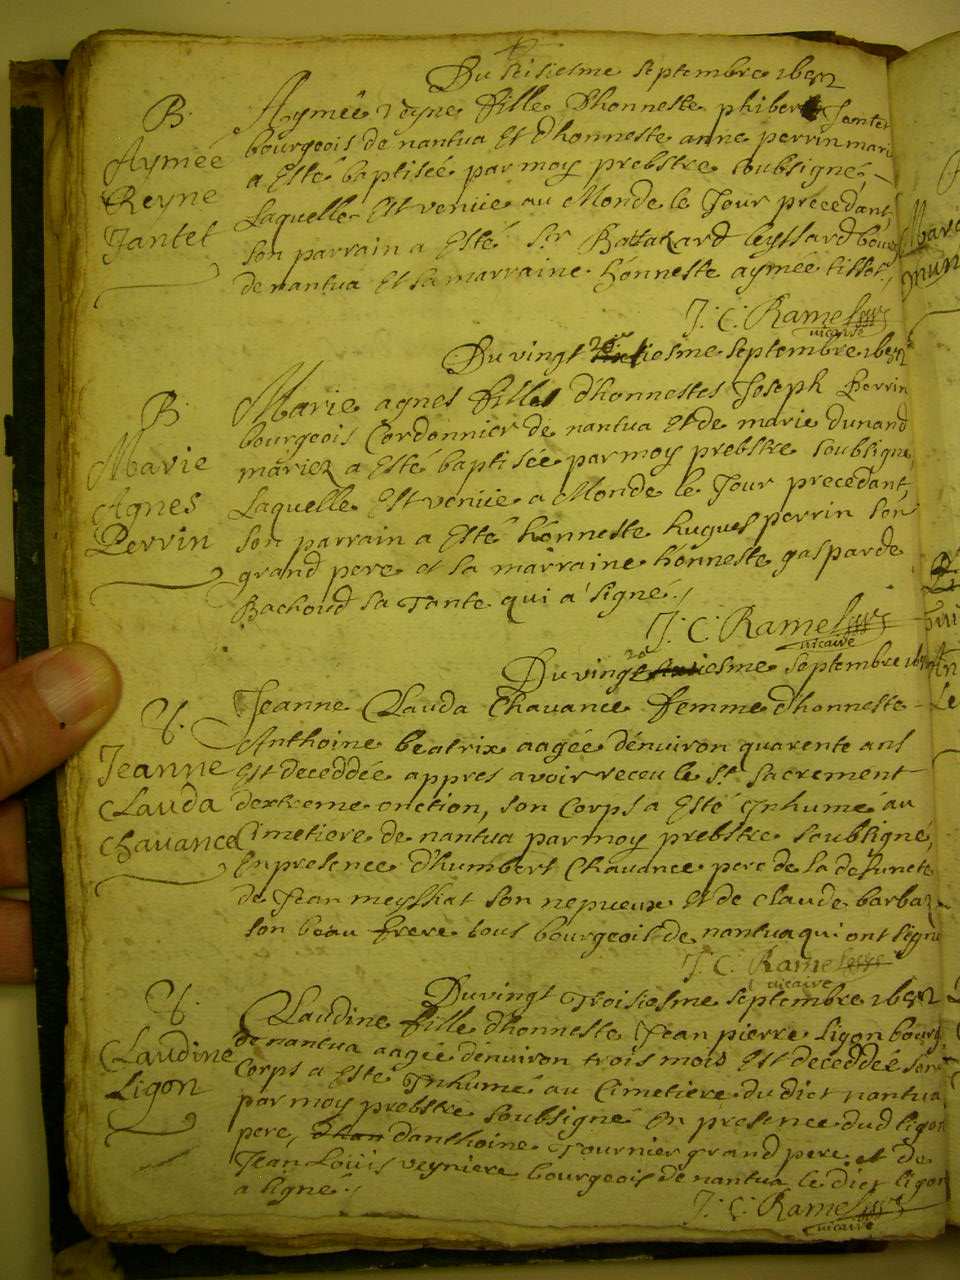 Du seisiesme septembre 1692
B.
Aymeé
Reyne
Jantet
Aymeé reyne fille d'honneste philibert Jantet
bourgeois de nantua et d'honneste anne perrin mari
a esté baptiseé par moy prebstre soubsigné,
Laquelle est venüe au Monde le Jour precedant,
son parrain a esté Sr. Baltazard leyssard bourg
de nantua et sa marraine hónneste aymeé tissot,
J. C. Ramel
vicaire
Du vingtiesme septembre 1692
B.
Marie
Agnes
Perrin
Marie agnes fille d'honnestes Joseph Perrin
bourgeois Cordonnier de nantua et de marie dunand
mariez a esté baptiseé par moy prebstre soubsigné,
Laquelle est venüe a Monde le Jour precedant,
son parrain a esté hónneste hugues perrin son
grand pere et sa marraine hónneste gasparde
Bachoud sa Tante qui a signé.
J. C. Ramel
vicaire
Du vingtiesme septembre
S.
Jeanne
Clauda
Chavance
Jeanne Clauda Chavance femme d'honneste
Anthoine beatrix aageé d'enuiron quarente ans
est deceddeé appres avoir receu le St. Sacrement
d'extreme onction, son Corps a esté Inhumé au
Cimetiere de nantua par moy prebstre soubsigné,
En presence d'humbert Chavance pere de la defuncte
de Jean meyssiat son nepueux et de Claude barbaz
son beau frere tous bourgeois de nantua qui ont signé
J. C. Ramel
vicaire
Du vingt Troisiesme septembre 1692
S.
Claudine
Ligon
Claudine fille d'honneste Jean pierre Ligon bourg.
de nantua aageé d'enuiron trois mois est deceddeé son
Corps a esté Inhumé au Cimetiere du dict nantua
par moy prebstre soubsigné en presence dud ligon
pere, d'anthoine Tournier grand pere et de
Jean Loüis veyniere bourgeois de nantua le dict ligon
a signé.
J. C. Ramel
vicaire